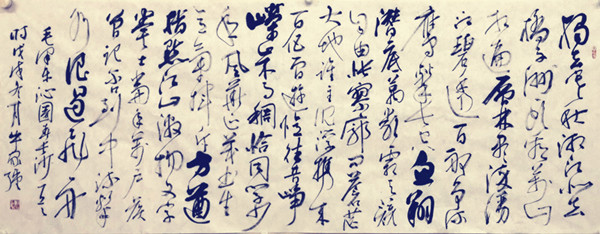 独立寒秋湘江北去
橘子洲头看万山
红遍层林尽染漫
江碧透百舸争流
鹰击长空鱼翔
浅底万类霜天竞
自由怅寥廓问苍茫
大地谁主沉浮携来
百侣曾游忆往昔峥
嵘岁月稠恰同学少
年风华正茂书生
意气挥斥方遒
指点江山激扬文字
粪土当年万户侯
曾记否到中流击
水浪遏飞舟
毛泽东沁园春长沙
时戊戌冬月